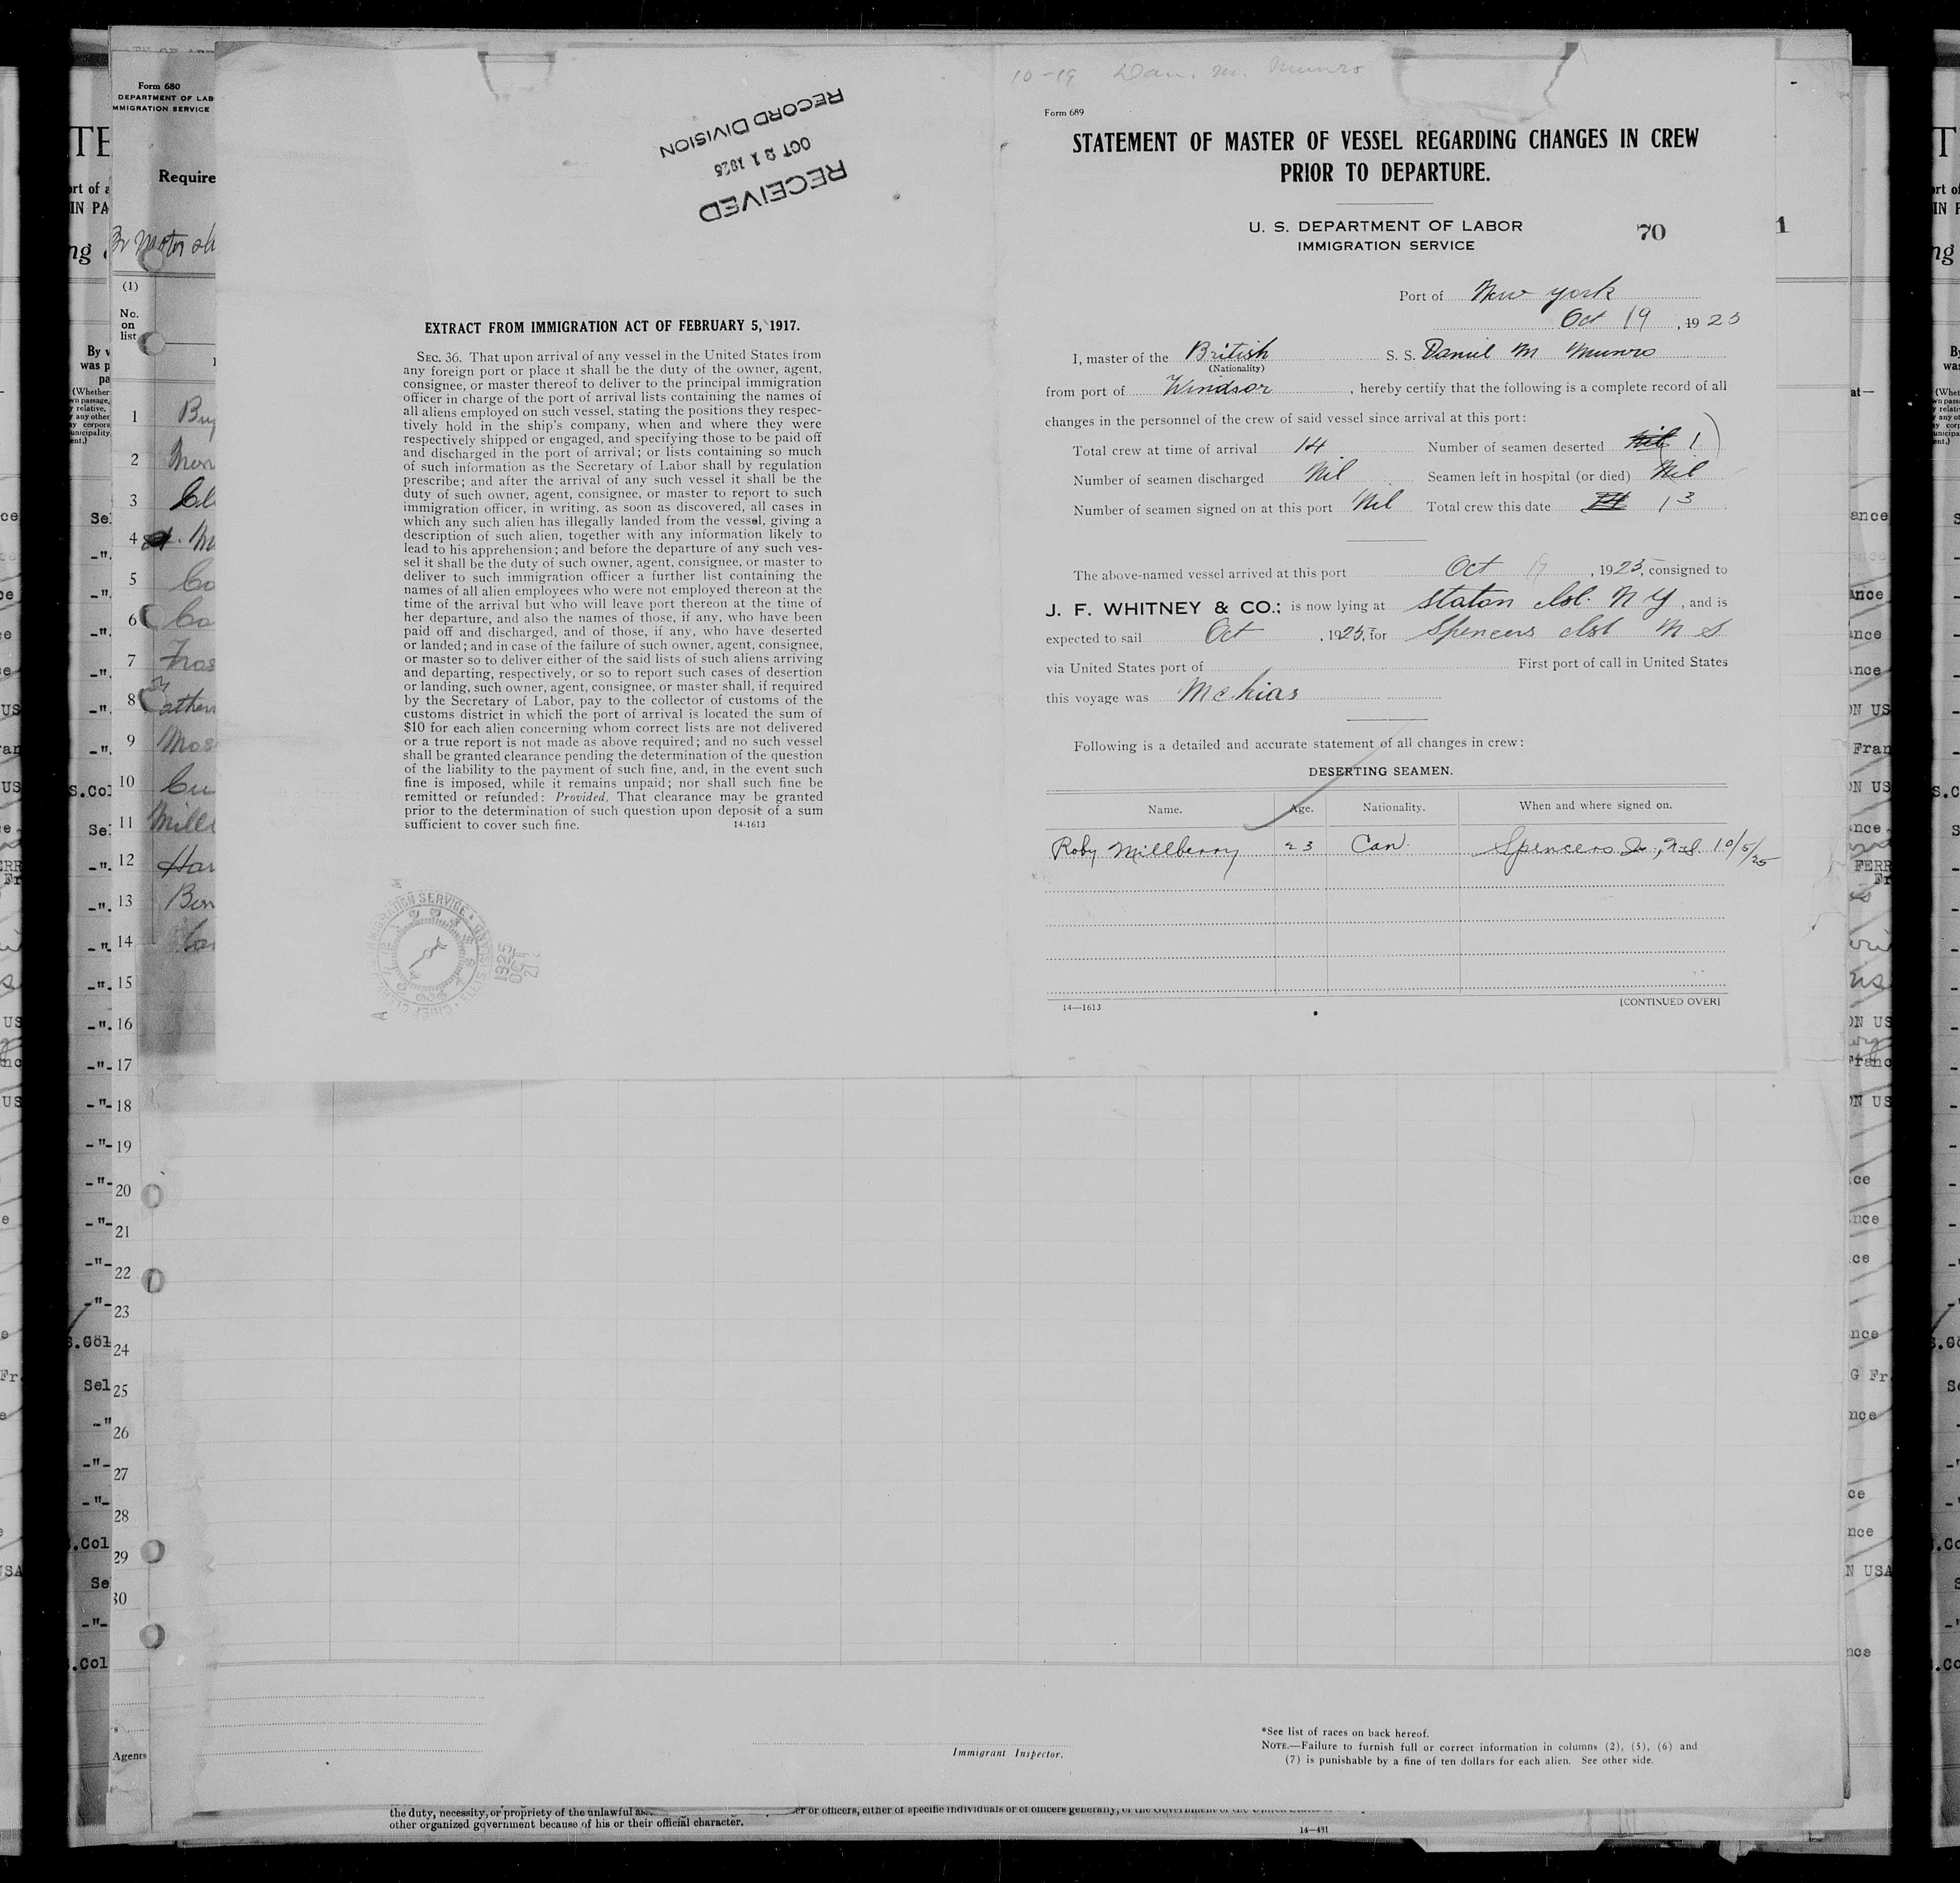 Form 680
DEPARTMENT OF LAB
MMIGRATION SERVICE
Require
(1)
No.
on
list
1
2
3
4
5
6
7
8
9
10
11
12
13
14
15
16
17
18
19
20
21
22
23
24
25
26
27
28
29
30
RECEIVED
OCT 21 1925
RECORD DIVISION
EXTRACT FROM IMMIGRATION ACT OF FEBRUARY 5, 1917.
SEC. 36. That upon arrival of any vessel in the United States from
any foreign port or place it shall be the duty of the owner, agent,
consignee, or master thereof to deliver to the principal immigration
officer in charge of the port of arrival lists containing the names of
all aliens employed on such vessel, stating the positions they respec-
tively hold in the ship's company, when and where they were
respectively shipped or engaged, and specifying those to be paid off
and discharged in the port of arrival; or lists containing so much
of such information as the Secretary of Labor shall by regulation
prescribe; and after the arrival of any such vessel it shall be the
duty of such owner, agent, consignee, or master to report to such
immigration officer, in writing, as soon as discovered, all cases in
which any such alien has illegally landed from the vessel, giving a
description of such alien, together with any information likely to
lead to his apprehension; and before the departure of any such ves-
sel it shall be the duty of such owner, agent, consignee, or master to
deliver to such immigration officer a further list containing the
names of all alien employees who were not employed thereon at the
time of the arrival but who will leave port thereon at the time of
her departure, and also the names of those, if any, who have been
paid off and discharged, and of those, if any, who have deserted
or landed; and in case of the failure of such owner, agent, consignee,
or master so to deliver either of the said lists of such aliens arriving
and departing, respectively, or so to report such cases of desertion
or landing, such owner, agent, consignee, or master shall, if required
by the Secretary of Labor, pay to the collector of customs of the
customs district in which the port of arrival is located the sum of
$10 for each alien concerning whom correct lists are not delivered
or a true report is not made as above required; and no such vessel
shall be granted clearance pending the determination of the question
of the liability to the payment of such fine, and, in the event such
fine is imposed, while it remains unpaid; nor shall such fine be
remitted or refunded: Provided, That clearance may be granted
prior to the determination of such question upon deposit of a sum
sufficient to cover such fine. 14-1613
10-19 Dan. M. Munro
Form 689
STATEMENT OF MASTER OF VESSEL REGARDING CHANGES IN CREW
PRIOR TO DEPARTURE.
U. S. DEPARTMENT OF LABOR
IMMIGRATION SERVICE
70
Port of New York
Oct 19, 1925
I, master of the British S. S. Daniel M Munro
(Nationality)
from port of Windsor, hereby certify that the following is a complete record of all
changes in the personnel of the crew of said vessel since arrival at this port:
Total crew at time of arrival 14 Number of seamen deserted Nil 1
Number of seamen discharged Nil Seamen left in hospital (or died) Nil
Number of seamen signed on at this port Nil Total crew this date 14 13
The above-named vessel arrived at this port Oct 17, 1925, consigned to
J. F. WHITNEY & CO.; is now lying at Staton Isl. N Y, and is
expected to sail Oct, 1925, for Spencers Isl N S
via United States port of First port of call in United States
this voyage was Mchias
Following is a detailed and accurate statement of all changes in crew:
DESERTING SEAMEN.
Name. Age. Nationality. When and where signed on.
Roby Millberry 23 Can. Spencers Is., N.S. 10/5/25
14—1613 [CONTINUED OVER]
Agents
Immigrant Inspector.
*See list of races on back hereof.
NOTE.—Failure to furnish full or correct information in columns (2), (5), (6) and
(7) is punishable by a fine of ten dollars for each alien. See other side.
the duty, necessity, or propriety of the unlawful
er or officers, either of specific individuals or of officers generally, of the Government of the United States
other organized government because of his or their official character.
14—491